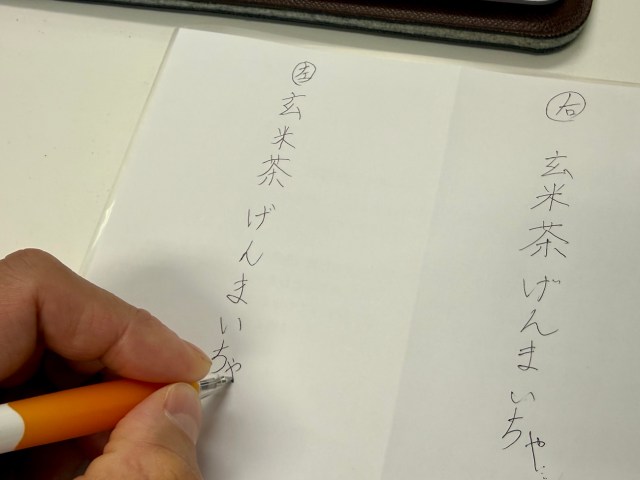 ㊨ 玄米茶 げんまいちゃ…
㊧ 玄米茶 げんまいちゃ